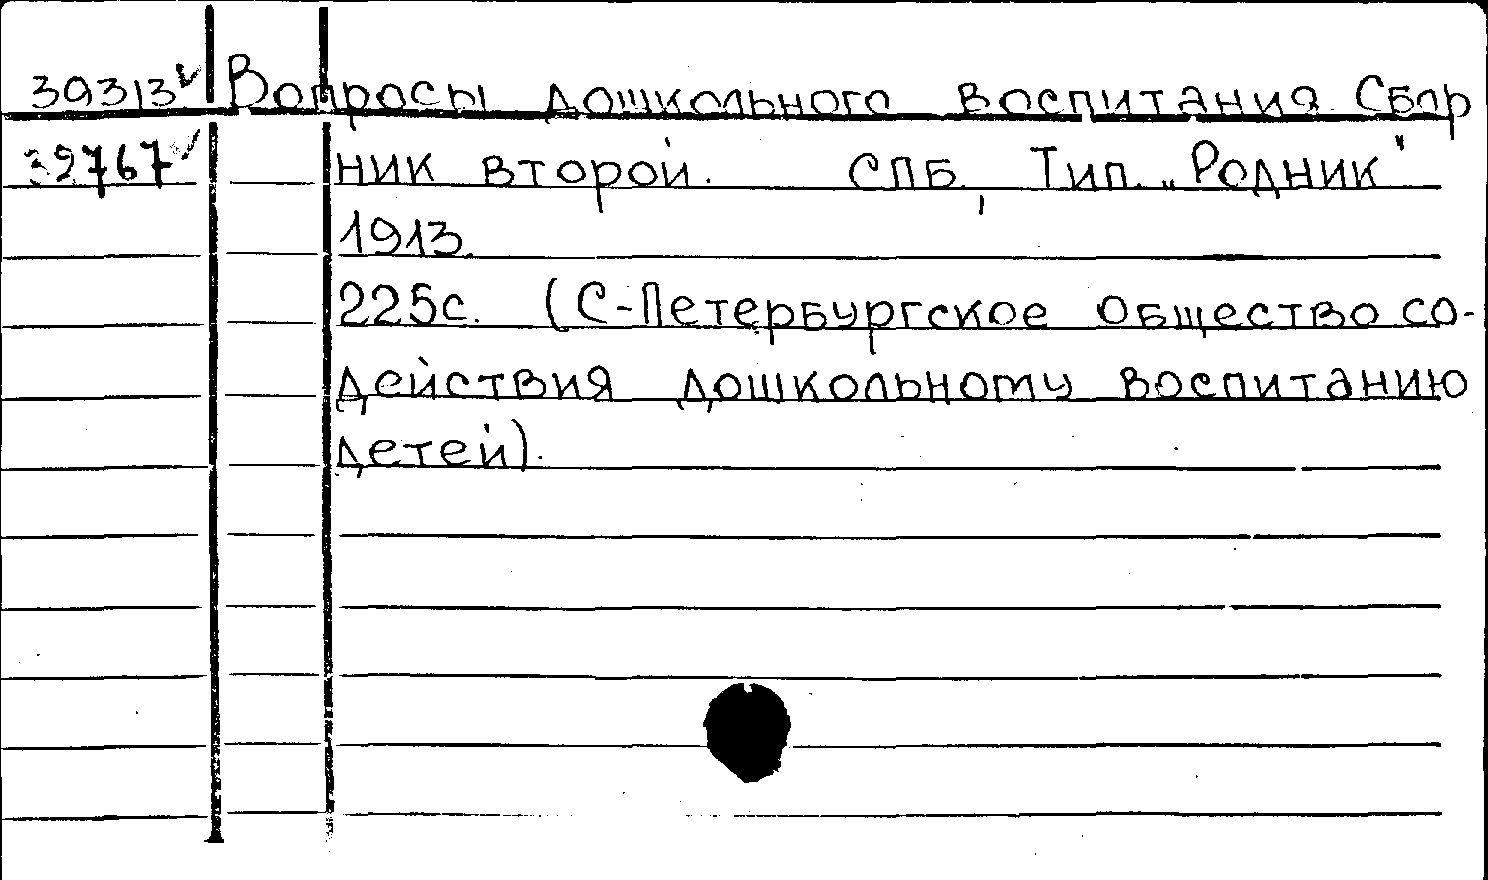 39313✓ Вопросы дошкольного воспитания. Сбор
39767✓ ник второй. СПБ, Тип. „Родник"
1913.
225с. (С-Петербургское общество со-
действия дошкольному воспитанию
детей).